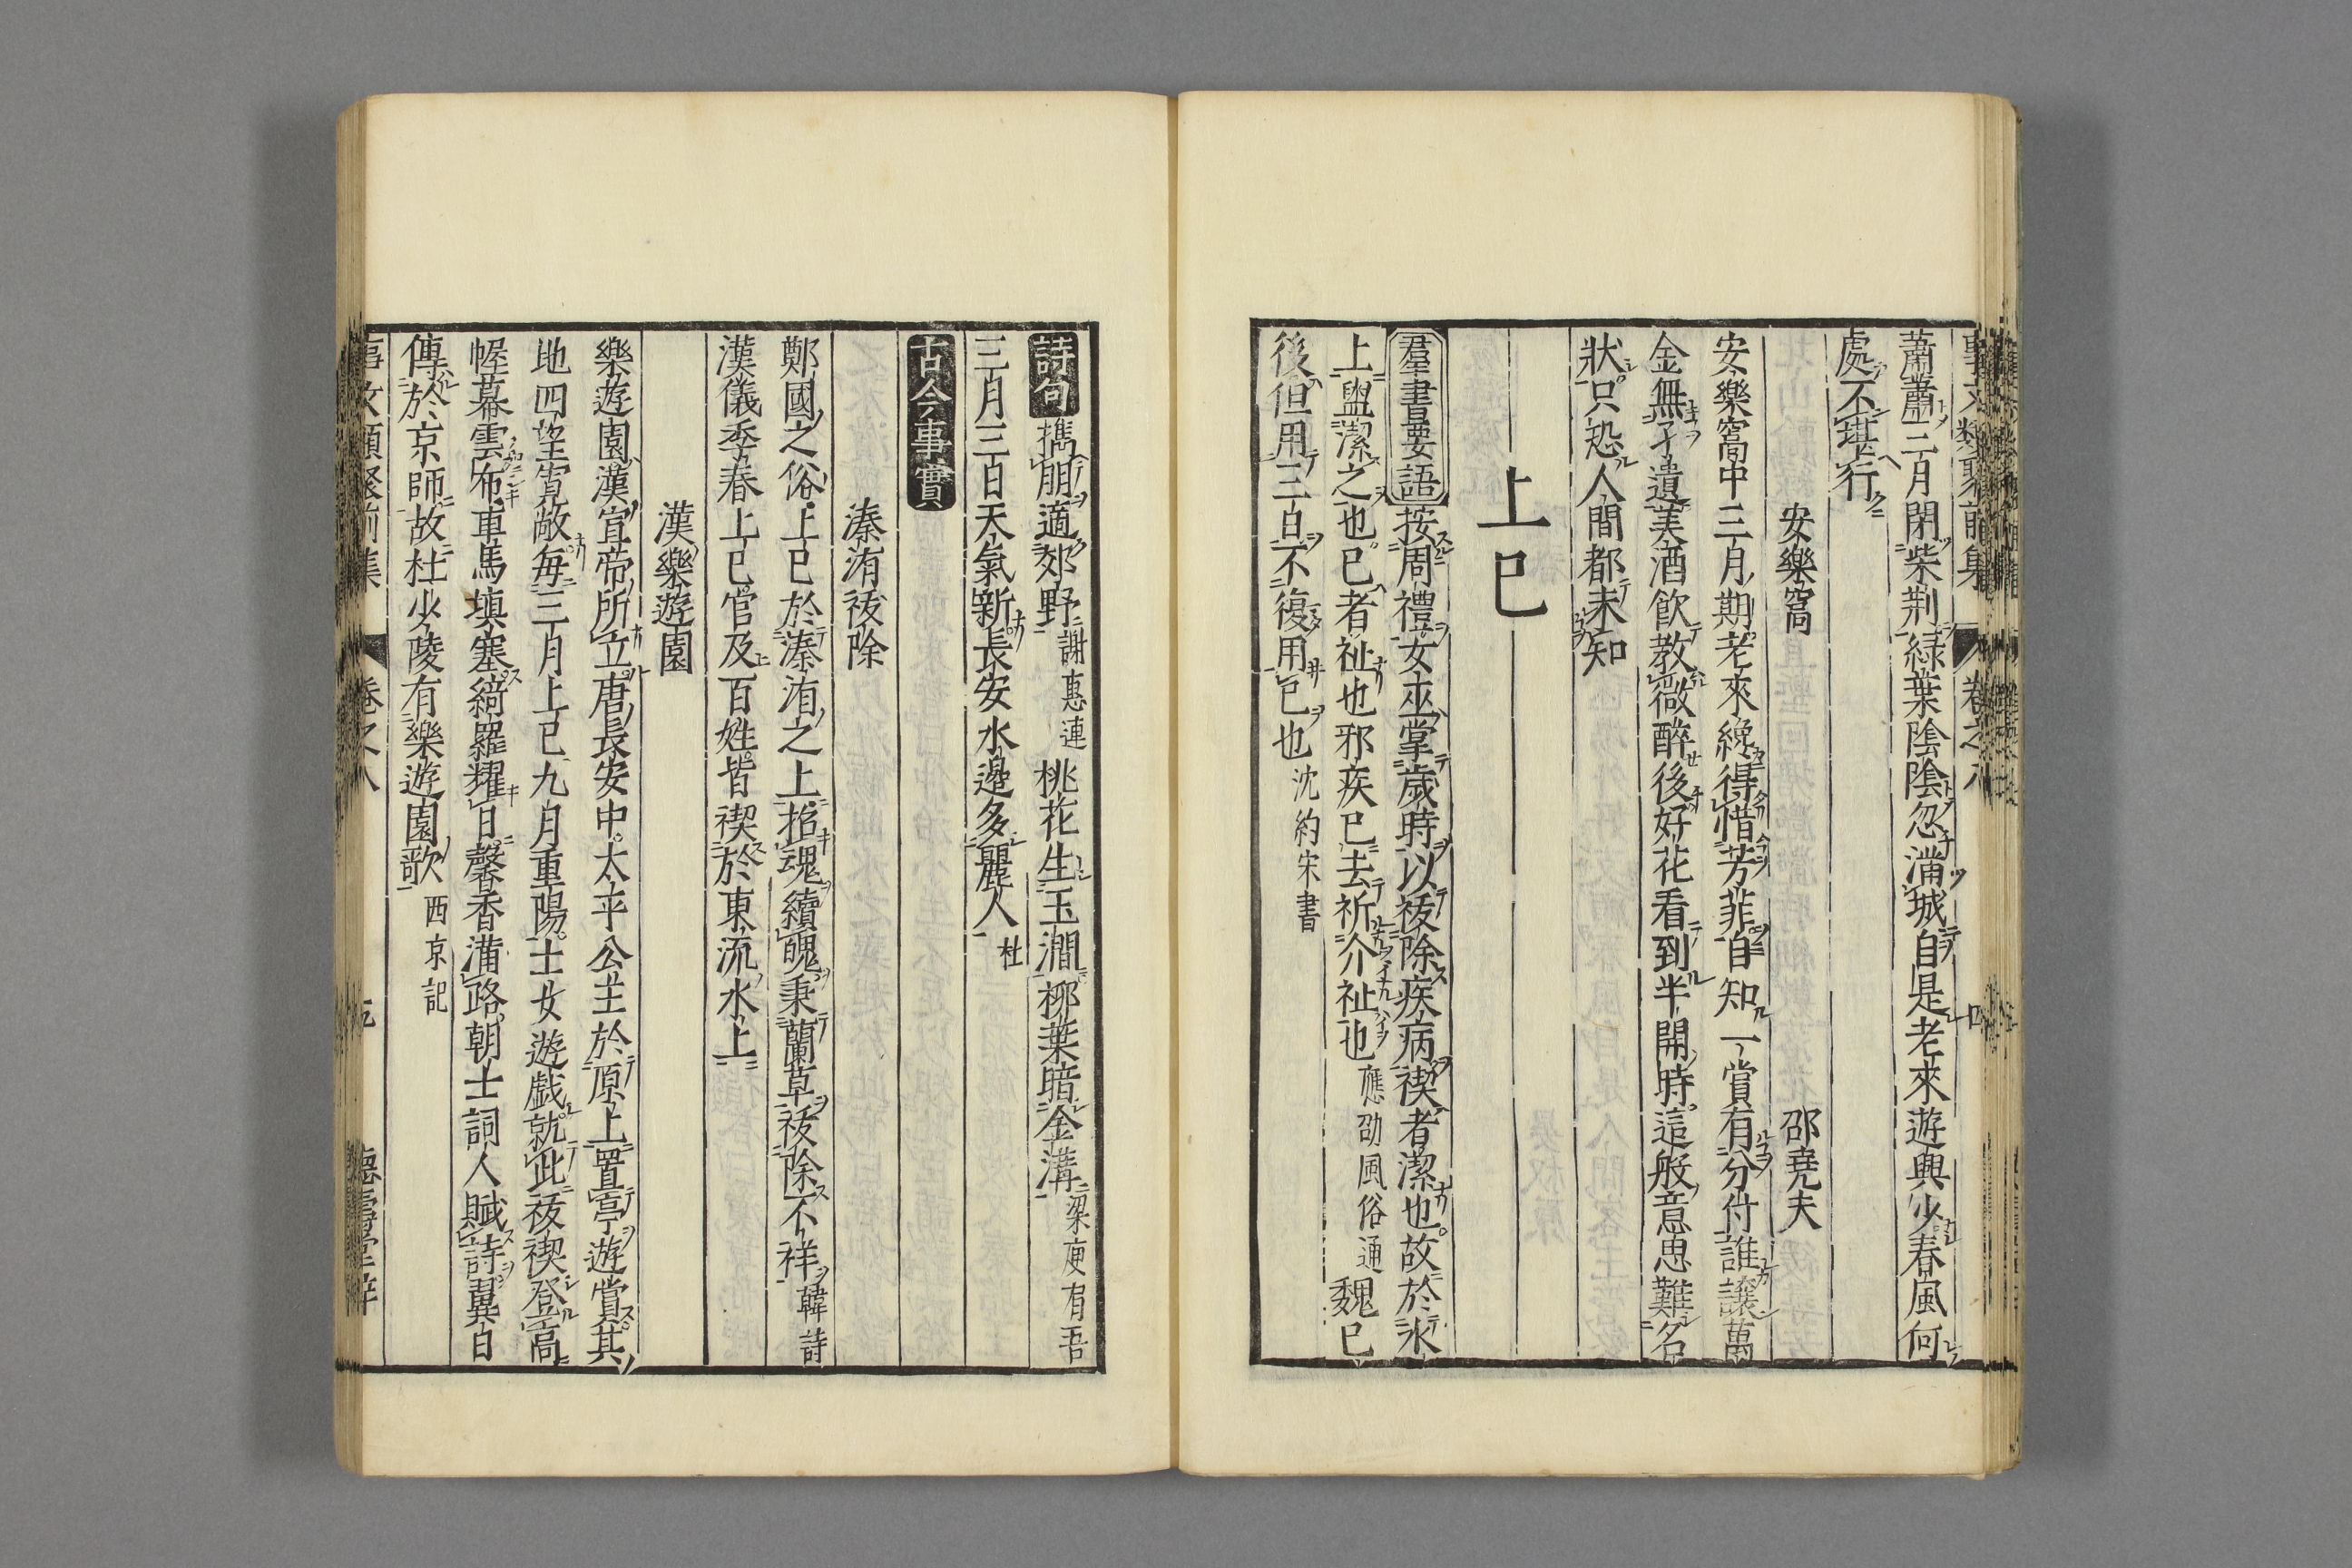 事文類聚前集 卷之八 四
蕭蕭三月閉柴荆緑葉陰陰忽滿城自是老來遊興少春風何
處不堪行
安樂窩 邵堯夫
安樂窩中三月期老來纔得惜芳菲自知一賞有分付誰讓萬
金無孑遺美酒飲教微醉後好花看到半開時這般意思難名
狀只恐人間都未知
上巳
羣書要語 按周禮女巫掌歲時以祓除疾病禊者潔也故於水
上盥潔之也巳者祉也邪疾已去祈介祉也 應劭風俗通 魏已
後但用三日不復用巳也 沈約宋書
詩句 攜朋適郊野 謝惠連 桃花生玉澗柳葉暗金溝 梁庾肩吾
三月三日天氣新長安水邊多麗人 杜
古今事實
溱洧祓除
鄭國之俗上巳於溱洧之上招魂續魄秉蘭草祓除不祥 韓詩
漢儀季春上巳官及百姓皆禊於東流水上
漢樂遊園
樂遊園漢宣帝所立唐長安中太平公主於原上置亭遊賞其
地四望寬敞每三月上巳九月重陽士女遊戯就此祓禊登高
幄幕雲布車馬填塞綺羅耀日馨香滿路朝士詞人賦詩翼日
傳於京師故杜少陵有樂遊園歌 西京記
事文類聚前集 卷之八 五 德壽堂梓